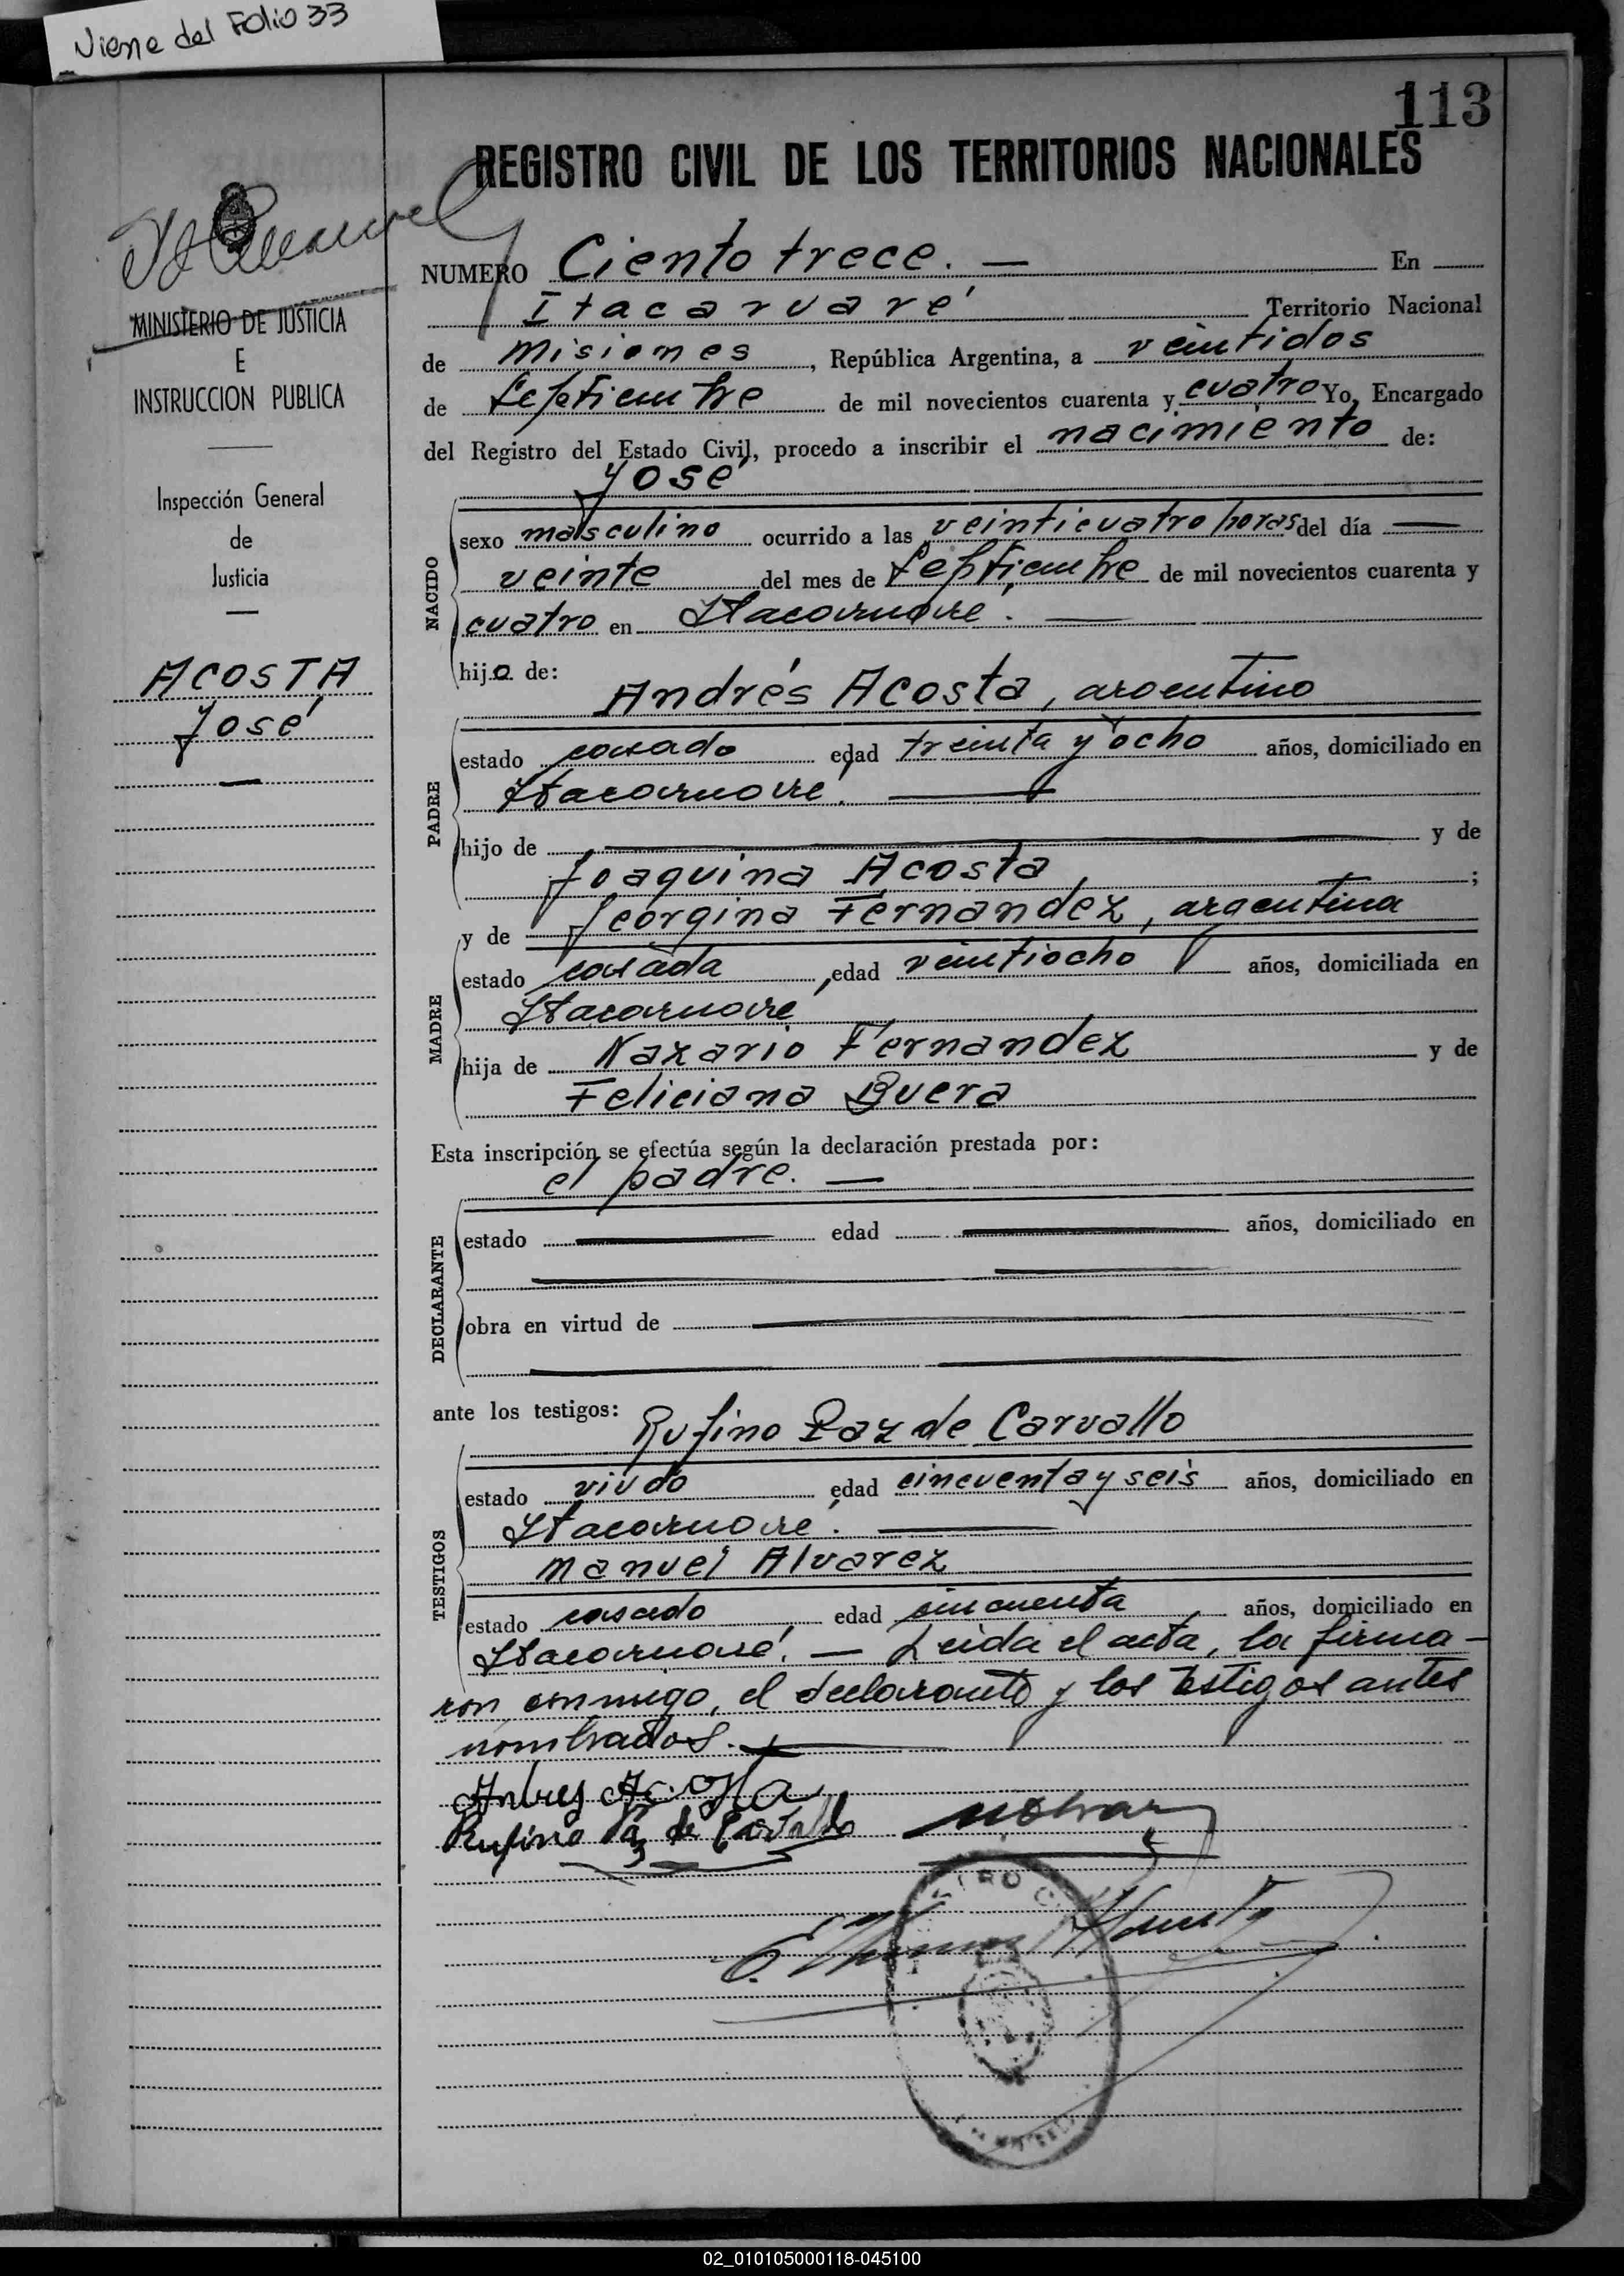 Viene del Folio 33
113
REGISTRO CIVIL DE LOS TERRITORIOS NACIONALES
MINISTERIO DE JUSTICIA
E
INSTRUCCION PUBLICA
Inspección General
de
Justicia
ACOSTA
José
NUMERO Ciento trece. — En
Itacaruaré Territorio Nacional
de Misiones, República Argentina, a veintidos
de Septiembre de mil novecientos cuarenta y cuatro Yo, Encargado
del Registro del Estado Civil, procedo a inscribir el nacimiento de:
José
NACIDO
sexo masculino ocurrido a las veinticuatro horas del día —
veinte del mes de Septiembre de mil novecientos cuarenta y
cuatro en Itacaruare. —
hijo de:
Andrés Acosta, argentino
PADRE
estado casado edad treinta y ocho años, domiciliado en
Itacaruaré. —
hijo de — y de
Joaquina Acosta ;
y de Jeorgina Fernandez, argentina
MADRE
estado casada, edad veintiocho años, domiciliada en
Itacaruare
hija de Nazario Fernandez y de
Feliciana Buera
Esta inscripción se efectúa según la declaración prestada por:
el padre. —
DECLARANTE
estado — edad — años, domiciliado en
obra en virtud de —
ante los testigos:
Rufino Paz de Carvallo
TESTIGOS
estado viudo edad cincuenta y seis años, domiciliado en
Itacaruaré. —
Manuel Alvarez
estado casado edad cincuenta años, domiciliado en
Itacaruaré. — Leida el acta, la firma-
ron conmigo, el declarante y los testigos antes
nombrados. —
Andres Acosta
Rufino Paz de Carvallo
02_010105000118-045100